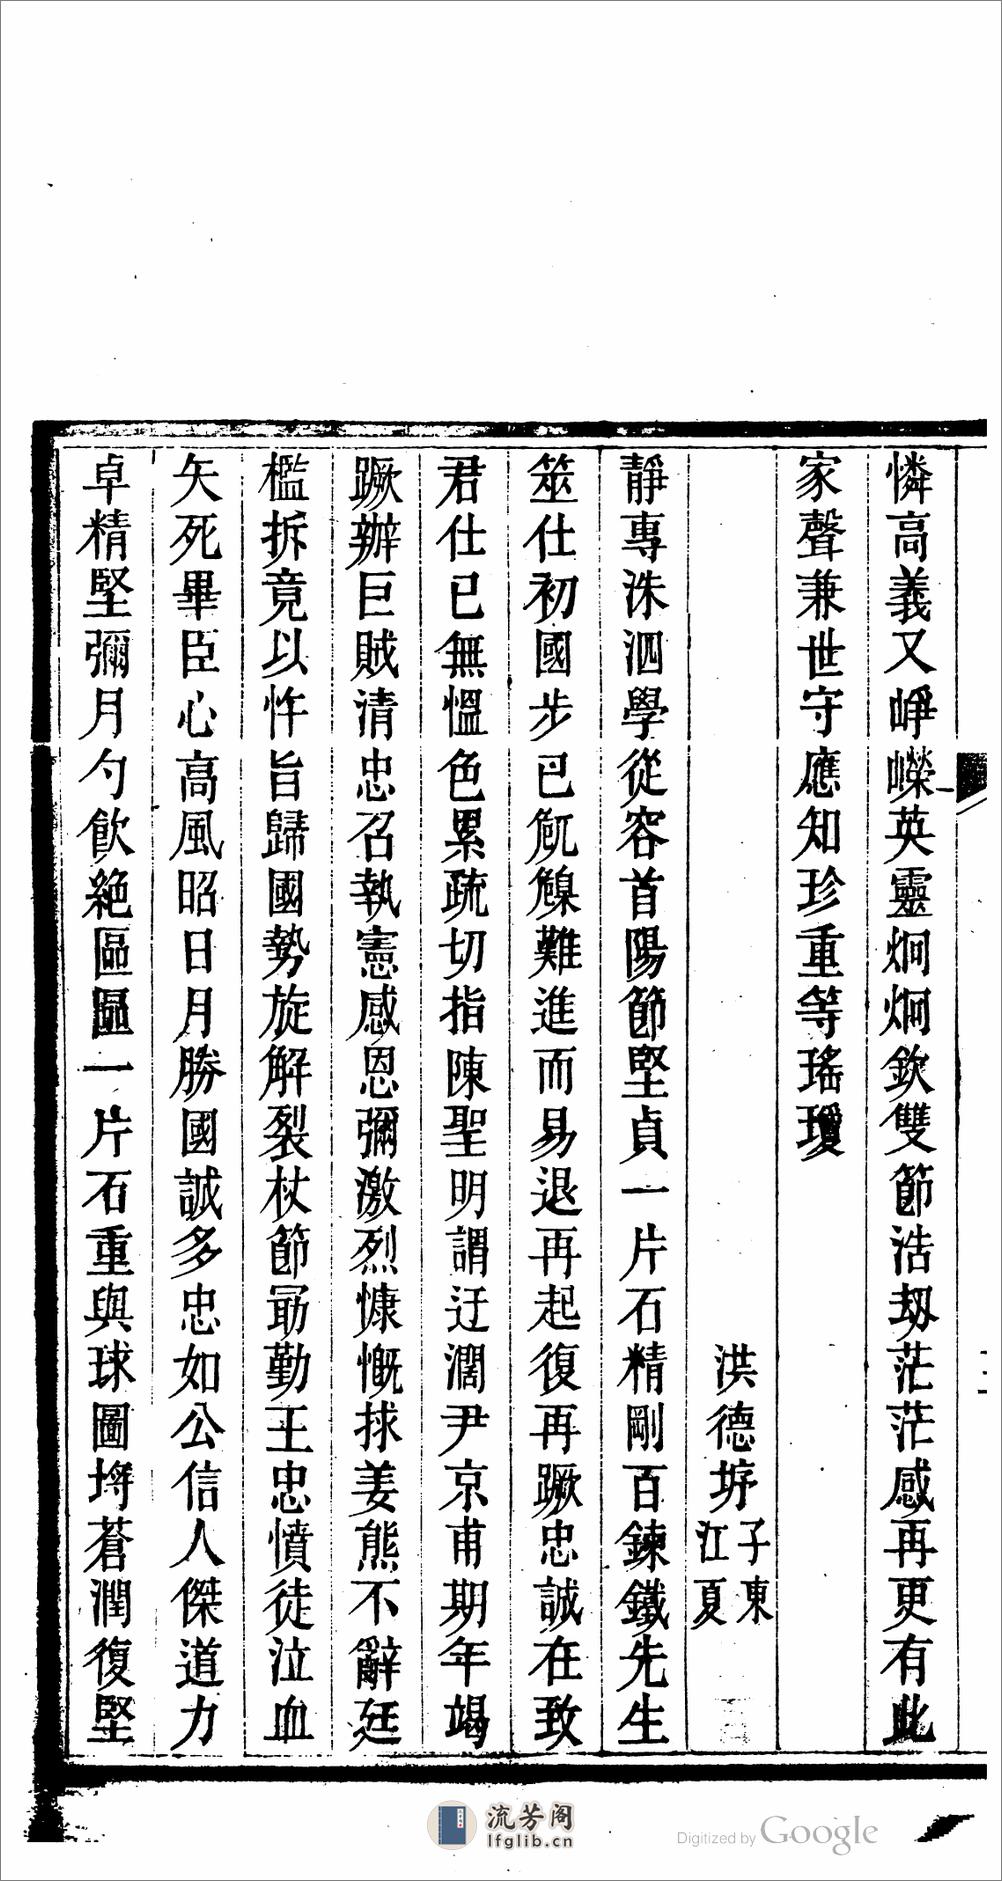 憐高義又崢嶸英靈炯炯欽雙節浩刼茫茫感再更有此
家聲兼世守應知珍重等瑤瓊
洪德埁子東江夏
靜專洙泗學從容首陽節堅貞一片石精剛百鍊鐵先生
筮仕初國步已卼臲難進而易退再起復再蹶忠誠在致
君仕已無慍色累疏切指陳聖明謂迂濶尹京甫期年竭
蹶辦巨賊清忠召執憲感恩彌激烈慷慨捄姜熊不辭廷
檻拆竟以忤旨歸國勢旋解裂杖節勗勤王忠憤徒泣血
矢死畢臣心高風昭日月勝國誠多忠如公信人傑道力
卓精堅彌月勺飲絕區區一片石重與球圖埒蒼潤復堅
流芳阁
lfglib.cn
Digitized by Google